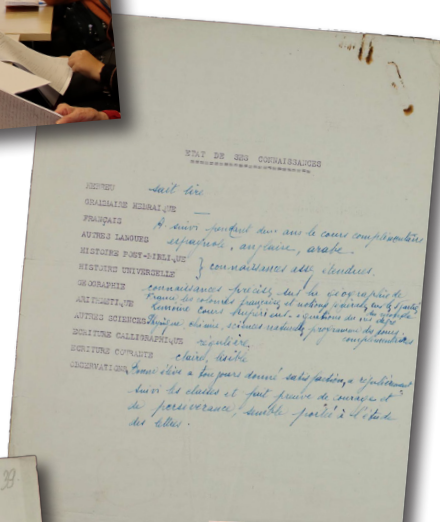 ETAT DE SES CONNAISSANCES
HEBREU sait lire
GRAMMAIRE HEBRAIQUE —
FRANÇAIS A suivi pendant deux ans le cours complémentaire
AUTRES LANGUES espagnole, anglaise, arabe.
HISTOIRE POST-BIBLIQUE
HISTOIRE UNIVERSELLE } connaissances assez étendues.
GEOGRAPHIE connaissances précises sur la géographie de
France, les colonies françaises et notions générales sur les
ARITHMETIQUE terminé cours supérieur équations du degré
AUTRES SCIENCES Physique chimie, sciences naturelles, programme des cours
complémentaires
ECRITURE CALLIGRAPHIQUE régulière,
ECRITURE COURANTE claire, lisible
OBSERVATIONS, élève a toujours donné satisfaction, a régulièrement
suivi les classes et fait preuve de courage et
de persévérance, semble portée à l'étude
des lettres.
39